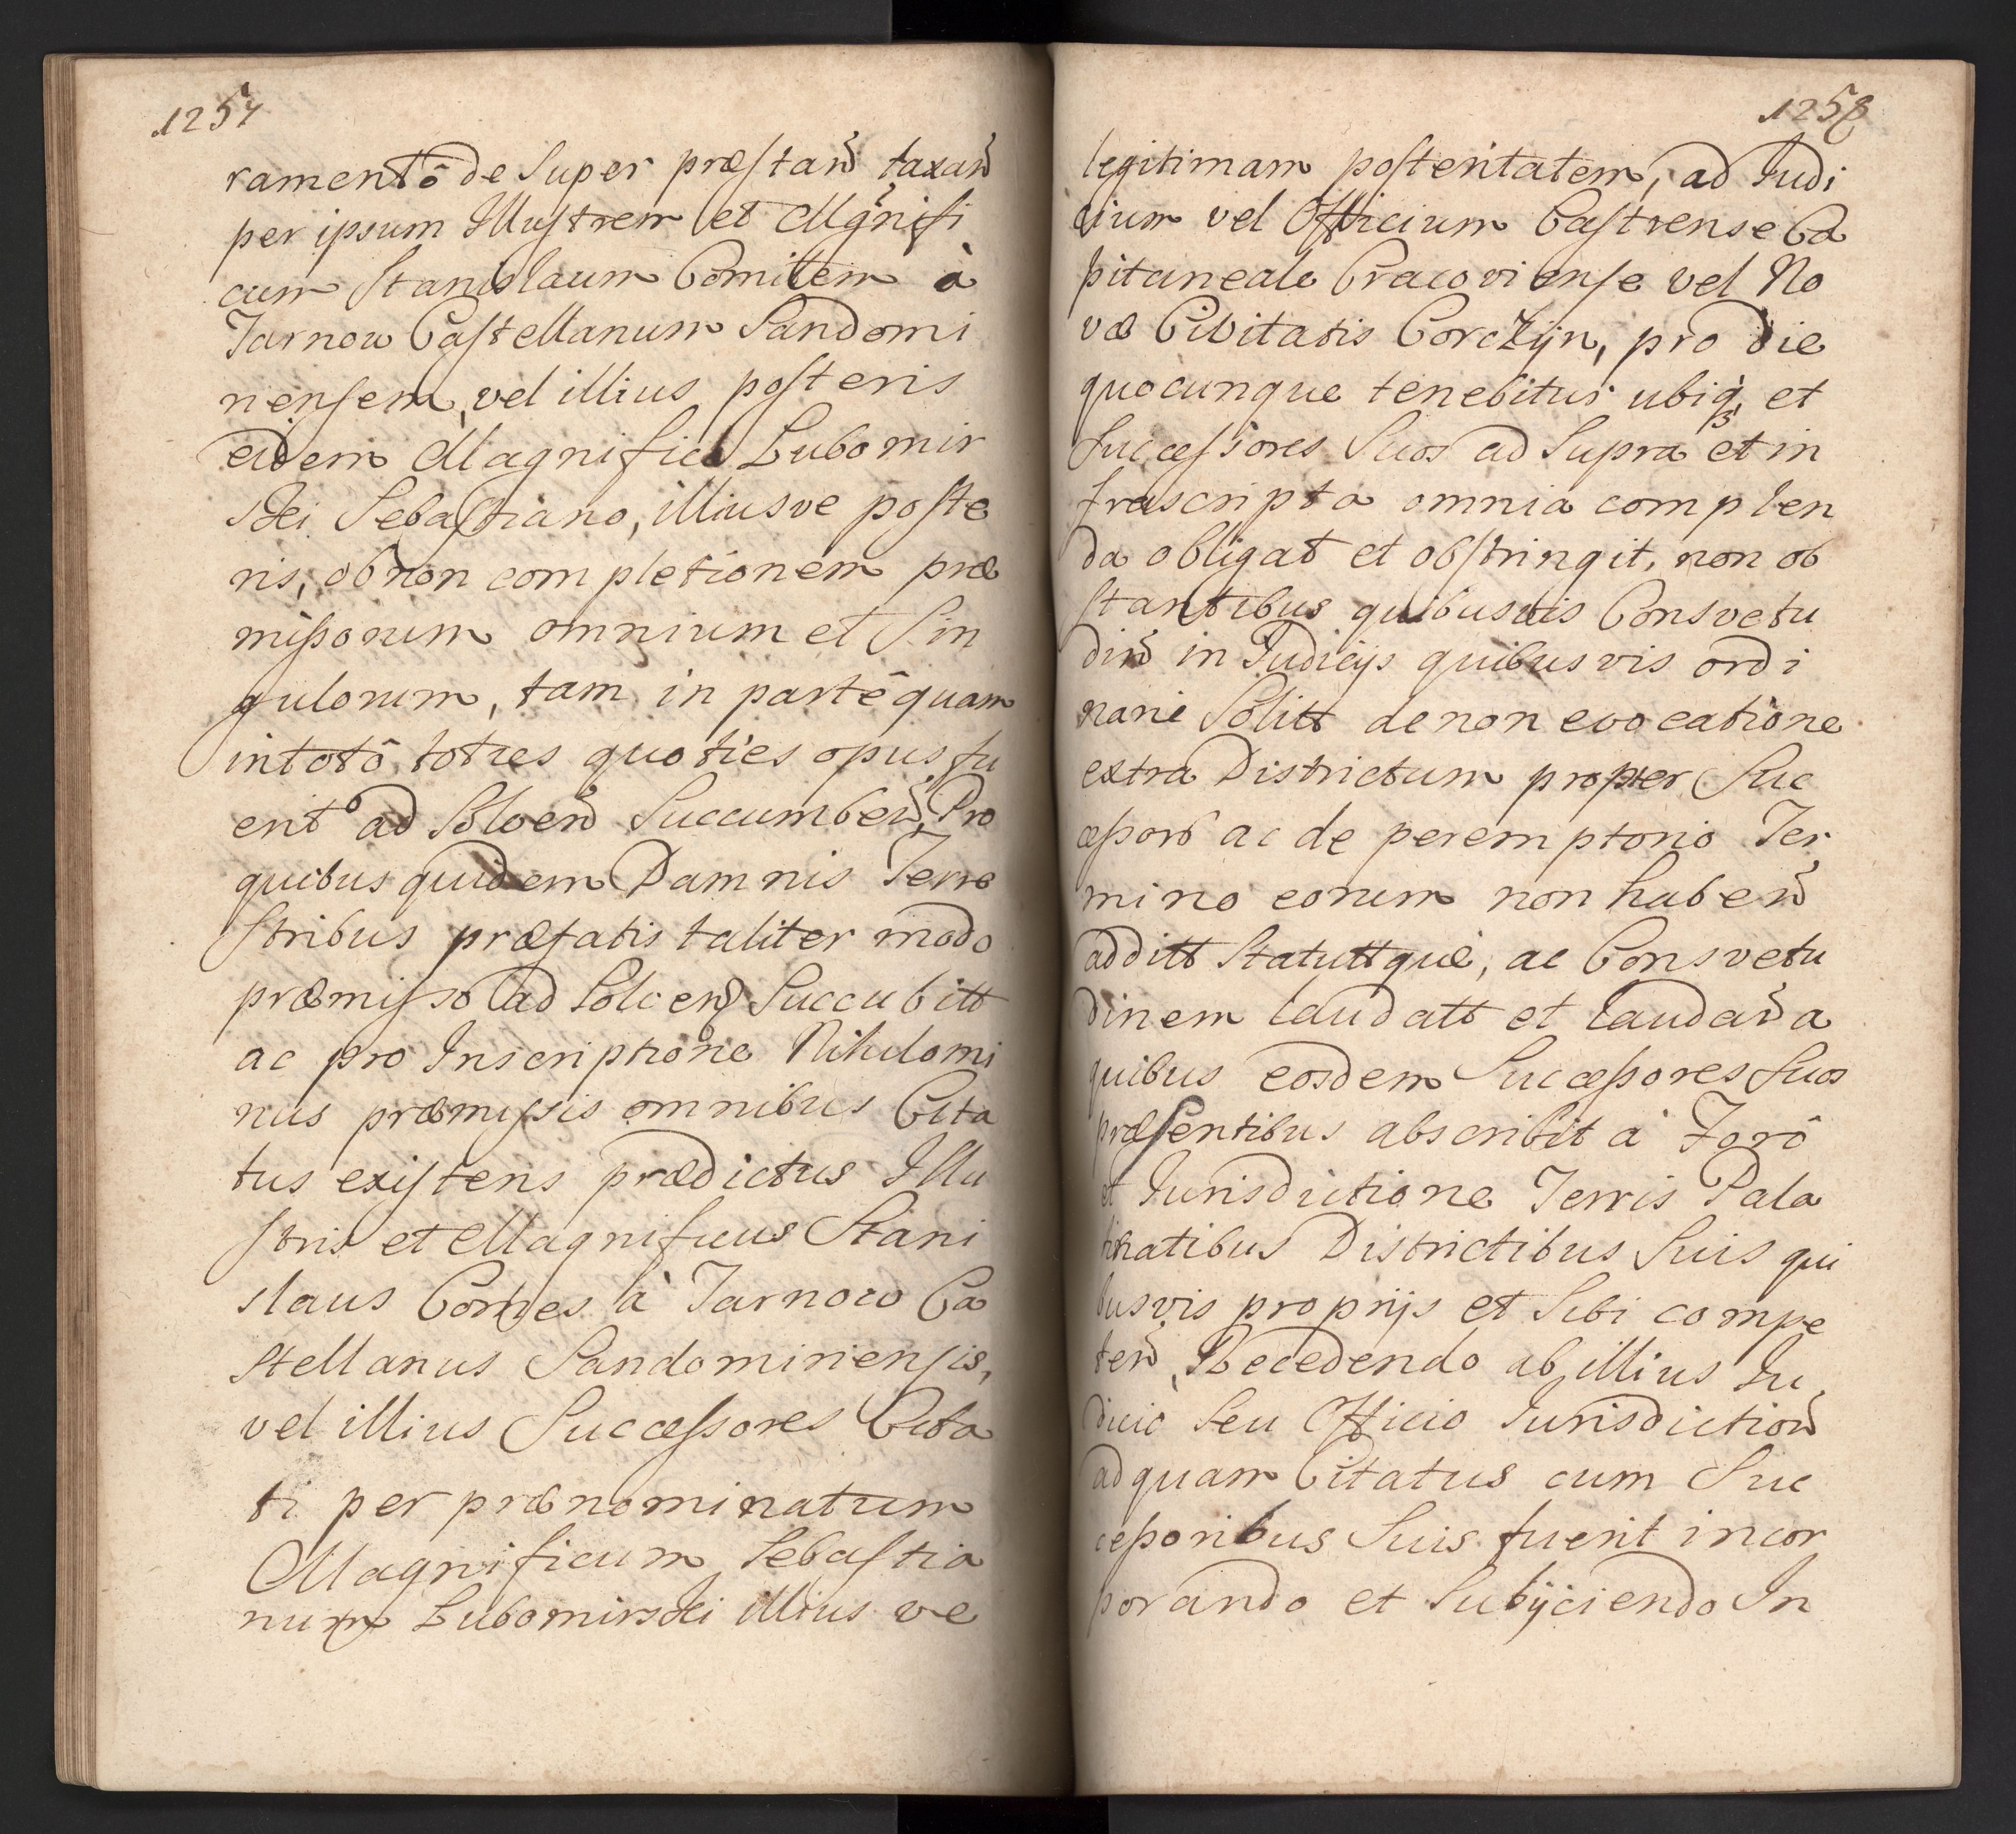 1257
ramentô de Super præstan̄ taxan̄
per ipsum Illustrem et Mgnifi
cum Stanislaum Comitem à
Tarnow Castellanum Sandomi
riensem, vel illius posteris
eidem Magnifico Lubomir
ski Sebastiano, illiusve poste
ris, ob non completionem præ
missorum omnium et Sin
gulorum, tam in partê quam
in totô toties quoties opus fu
erit ad Solven̄ Succumben̄, Pro
quibus quidem Damnis Terre
stribus præfatis taliter modo
præmisso ad Solven̄ Succubitt
ac pro Inscriptione Nihilomi
nus præmissis omnibus Cita
tus existens prædictus Illu
stris et Magnificus Stani
slaus Comes à Tarnow Ca
stellanus Sandomiriensis,
vel illius Successores Cita
ti per prænominatum
Magnificum Sebastia
num Lubomirski illius ve
1258
legitimam posteritatem, ad Iudi
cium vel Officium Castrense Ca
pitaneale Cracoviense vel No
væ Civitatis Corczyn, pro die
quocunque tenebitur ubiq; et
Successores Suos ad Supra et in
frascripta omnia complen
da obligat et obstringit, non ob
stantibus quibusvis Consvetu
din̄ in Iudicijs quibusvis ordi
narie Solitt de non evocatione
extra Districtum propter Suc
cessorō ac de peremptorio Ter
mino eorum non haben̄
additt Statuttquè, ac Consvetu
dinem laudatt et laudan̄ a
quibus eosdem Successores Suos
præsentibus abscribit à Forô
et Iurisdictione Terris Pala
tinatibus Districtibus Suis qui
busvis proprijs et Sibi compe
ten̄, Recedendo ab illius Iu
dicio Seu Officio Iurisdiction̄
ad quam Citatus cum Suc
cessoribus Suis fuerit incor
porando et Subijciendo In